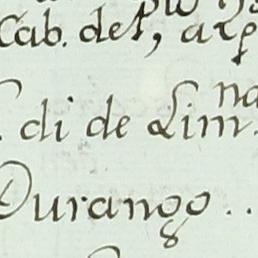 Cab. del, arp
di de Lim.na
Durango..